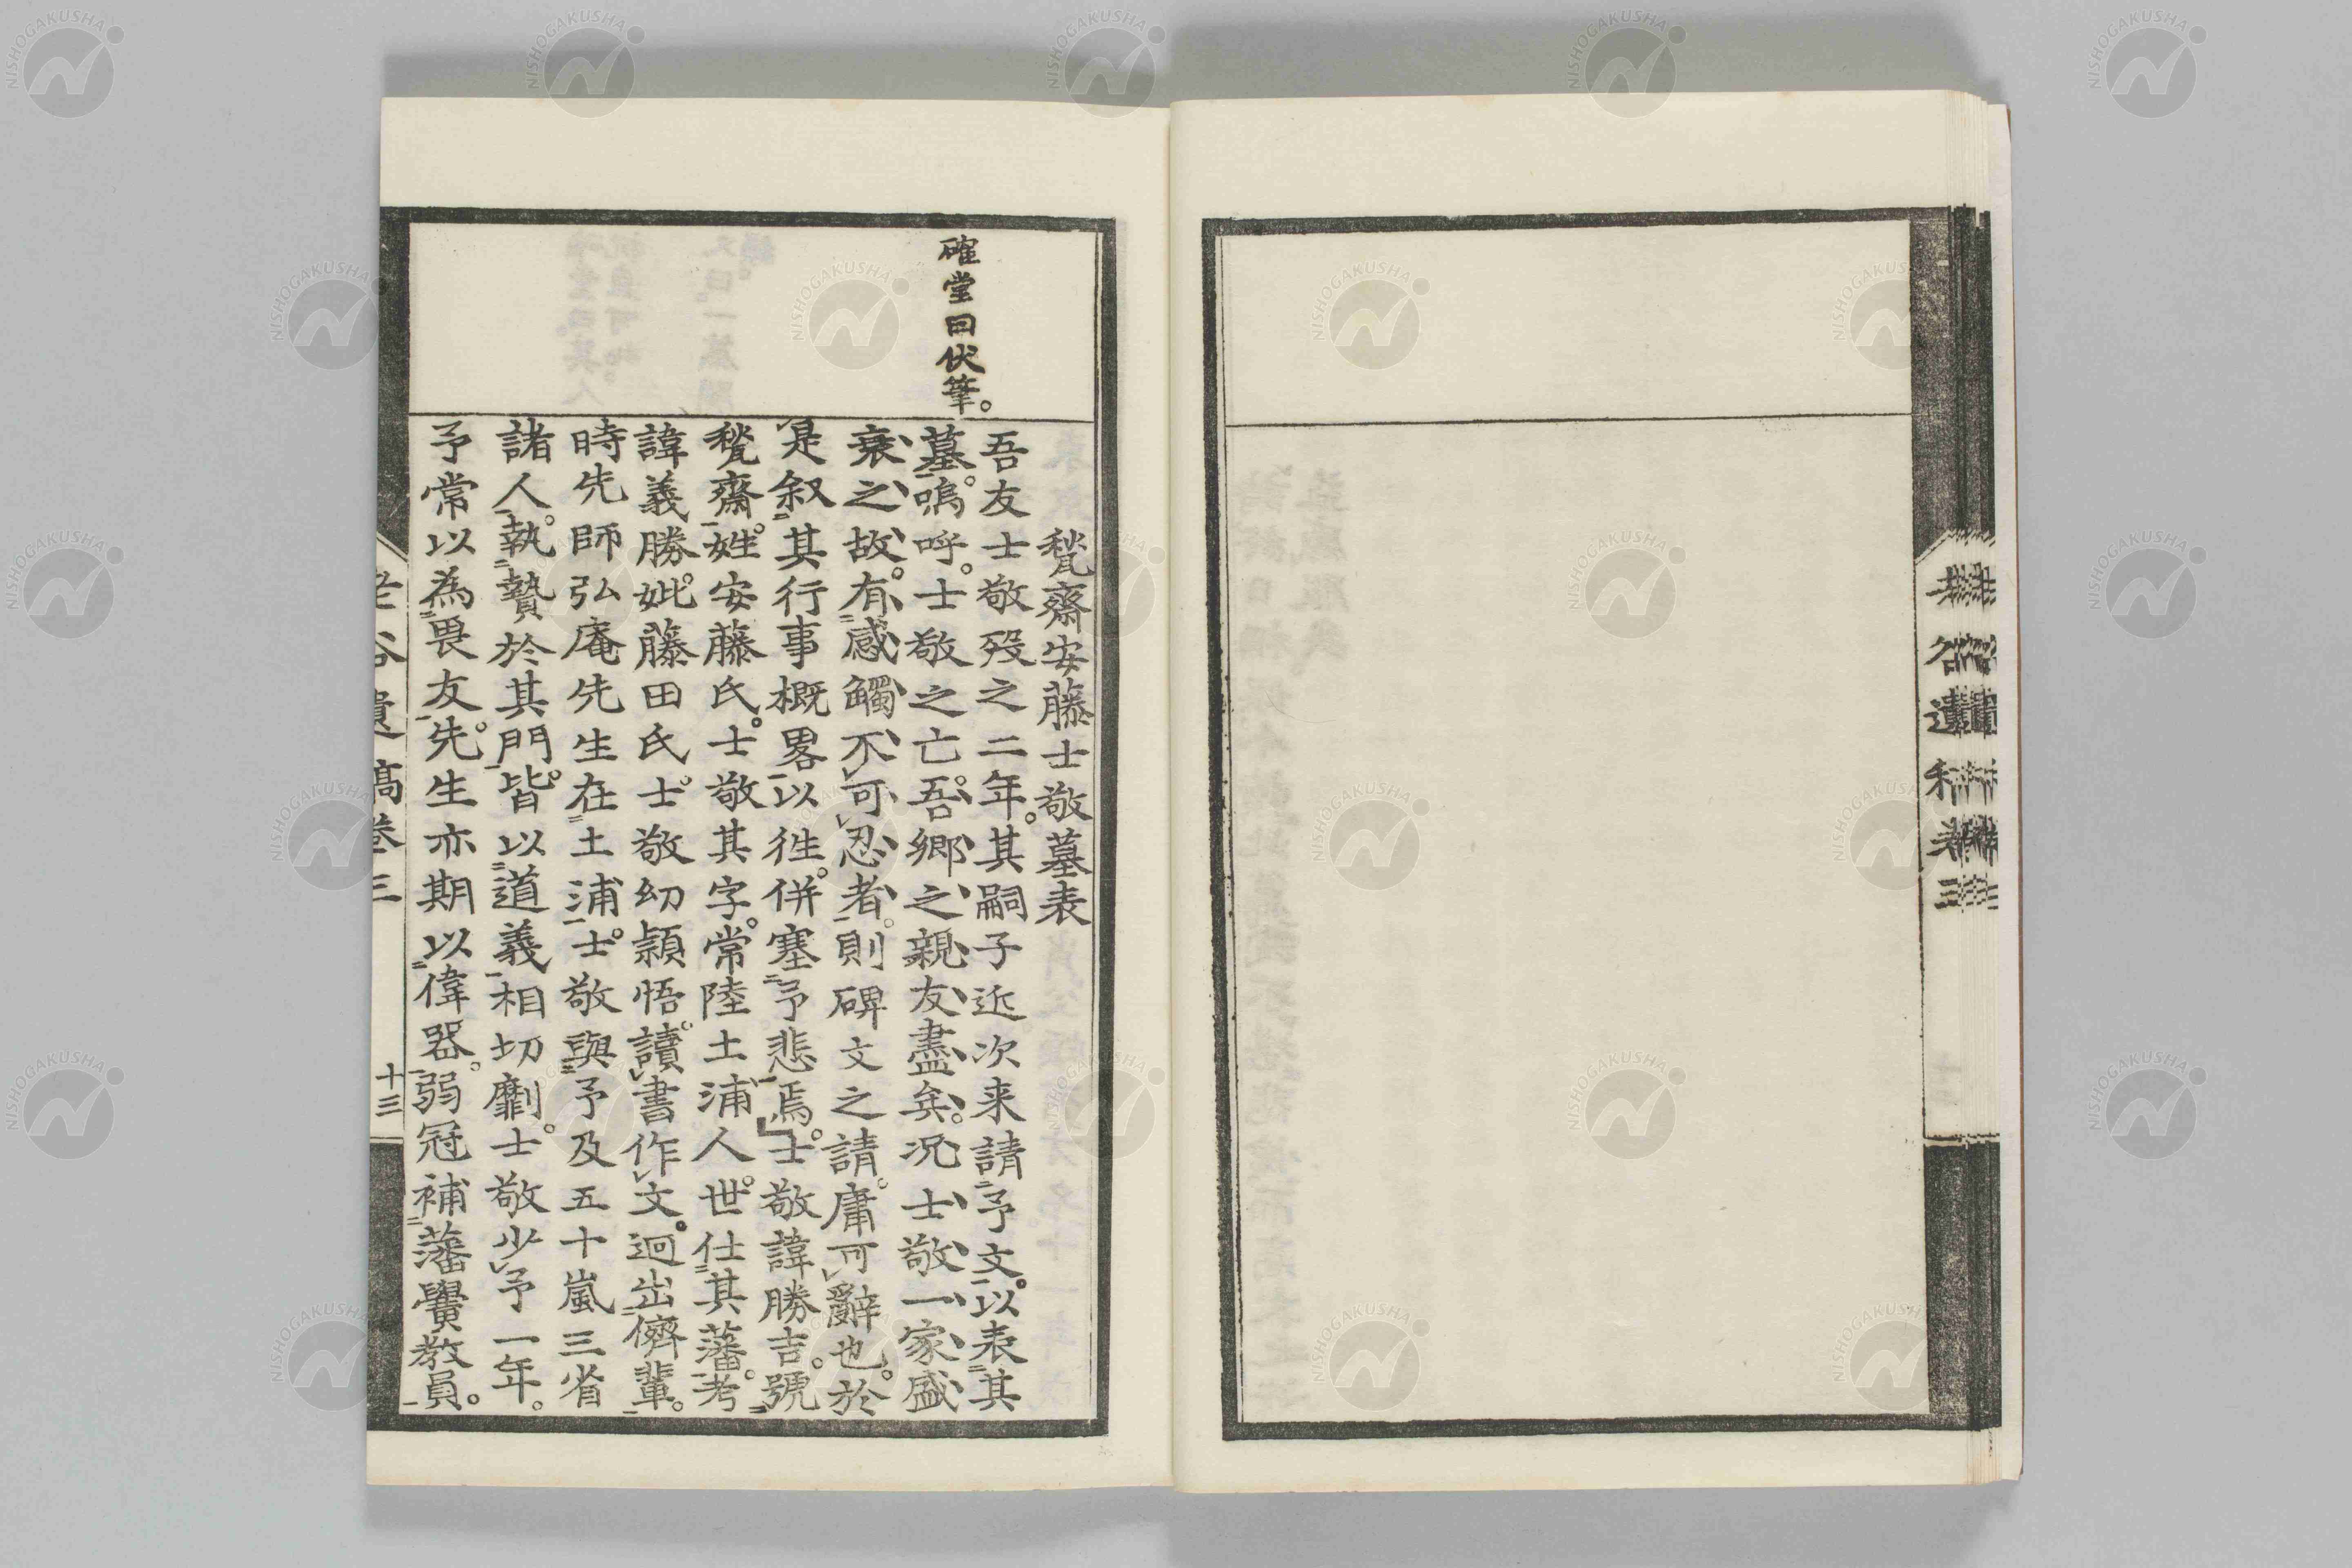 確堂曰伏筆。
甃齋安藤士敬墓表
吾友士敬歿之二年。其嗣子近次来請予文。以表其
墓。嗚呼。士敬之亡。吾郷之親友盡矣。况士敬一家盛
衰之故。有感觸不可忍者。則碑文之請。庸可辭也。於
是叙其行事概畧以徃。併塞予悲焉。士敬諱勝吉。號
甃齋。姓安藤氏。士敬其字。常陸土浦人。世仕其藩。考
諱義勝。妣藤田氏。士敬幼穎悟。讀書作文。迥出儕輩。
時先師弘庵先生在土浦。士敬與予及五十嵐三省
諸人。執贄於其門。皆以道義相切劘。士敬少予一年。
予常以為畏友。先生亦期以偉器。弱冠補藩黌教員。
遺稿卷三
十三